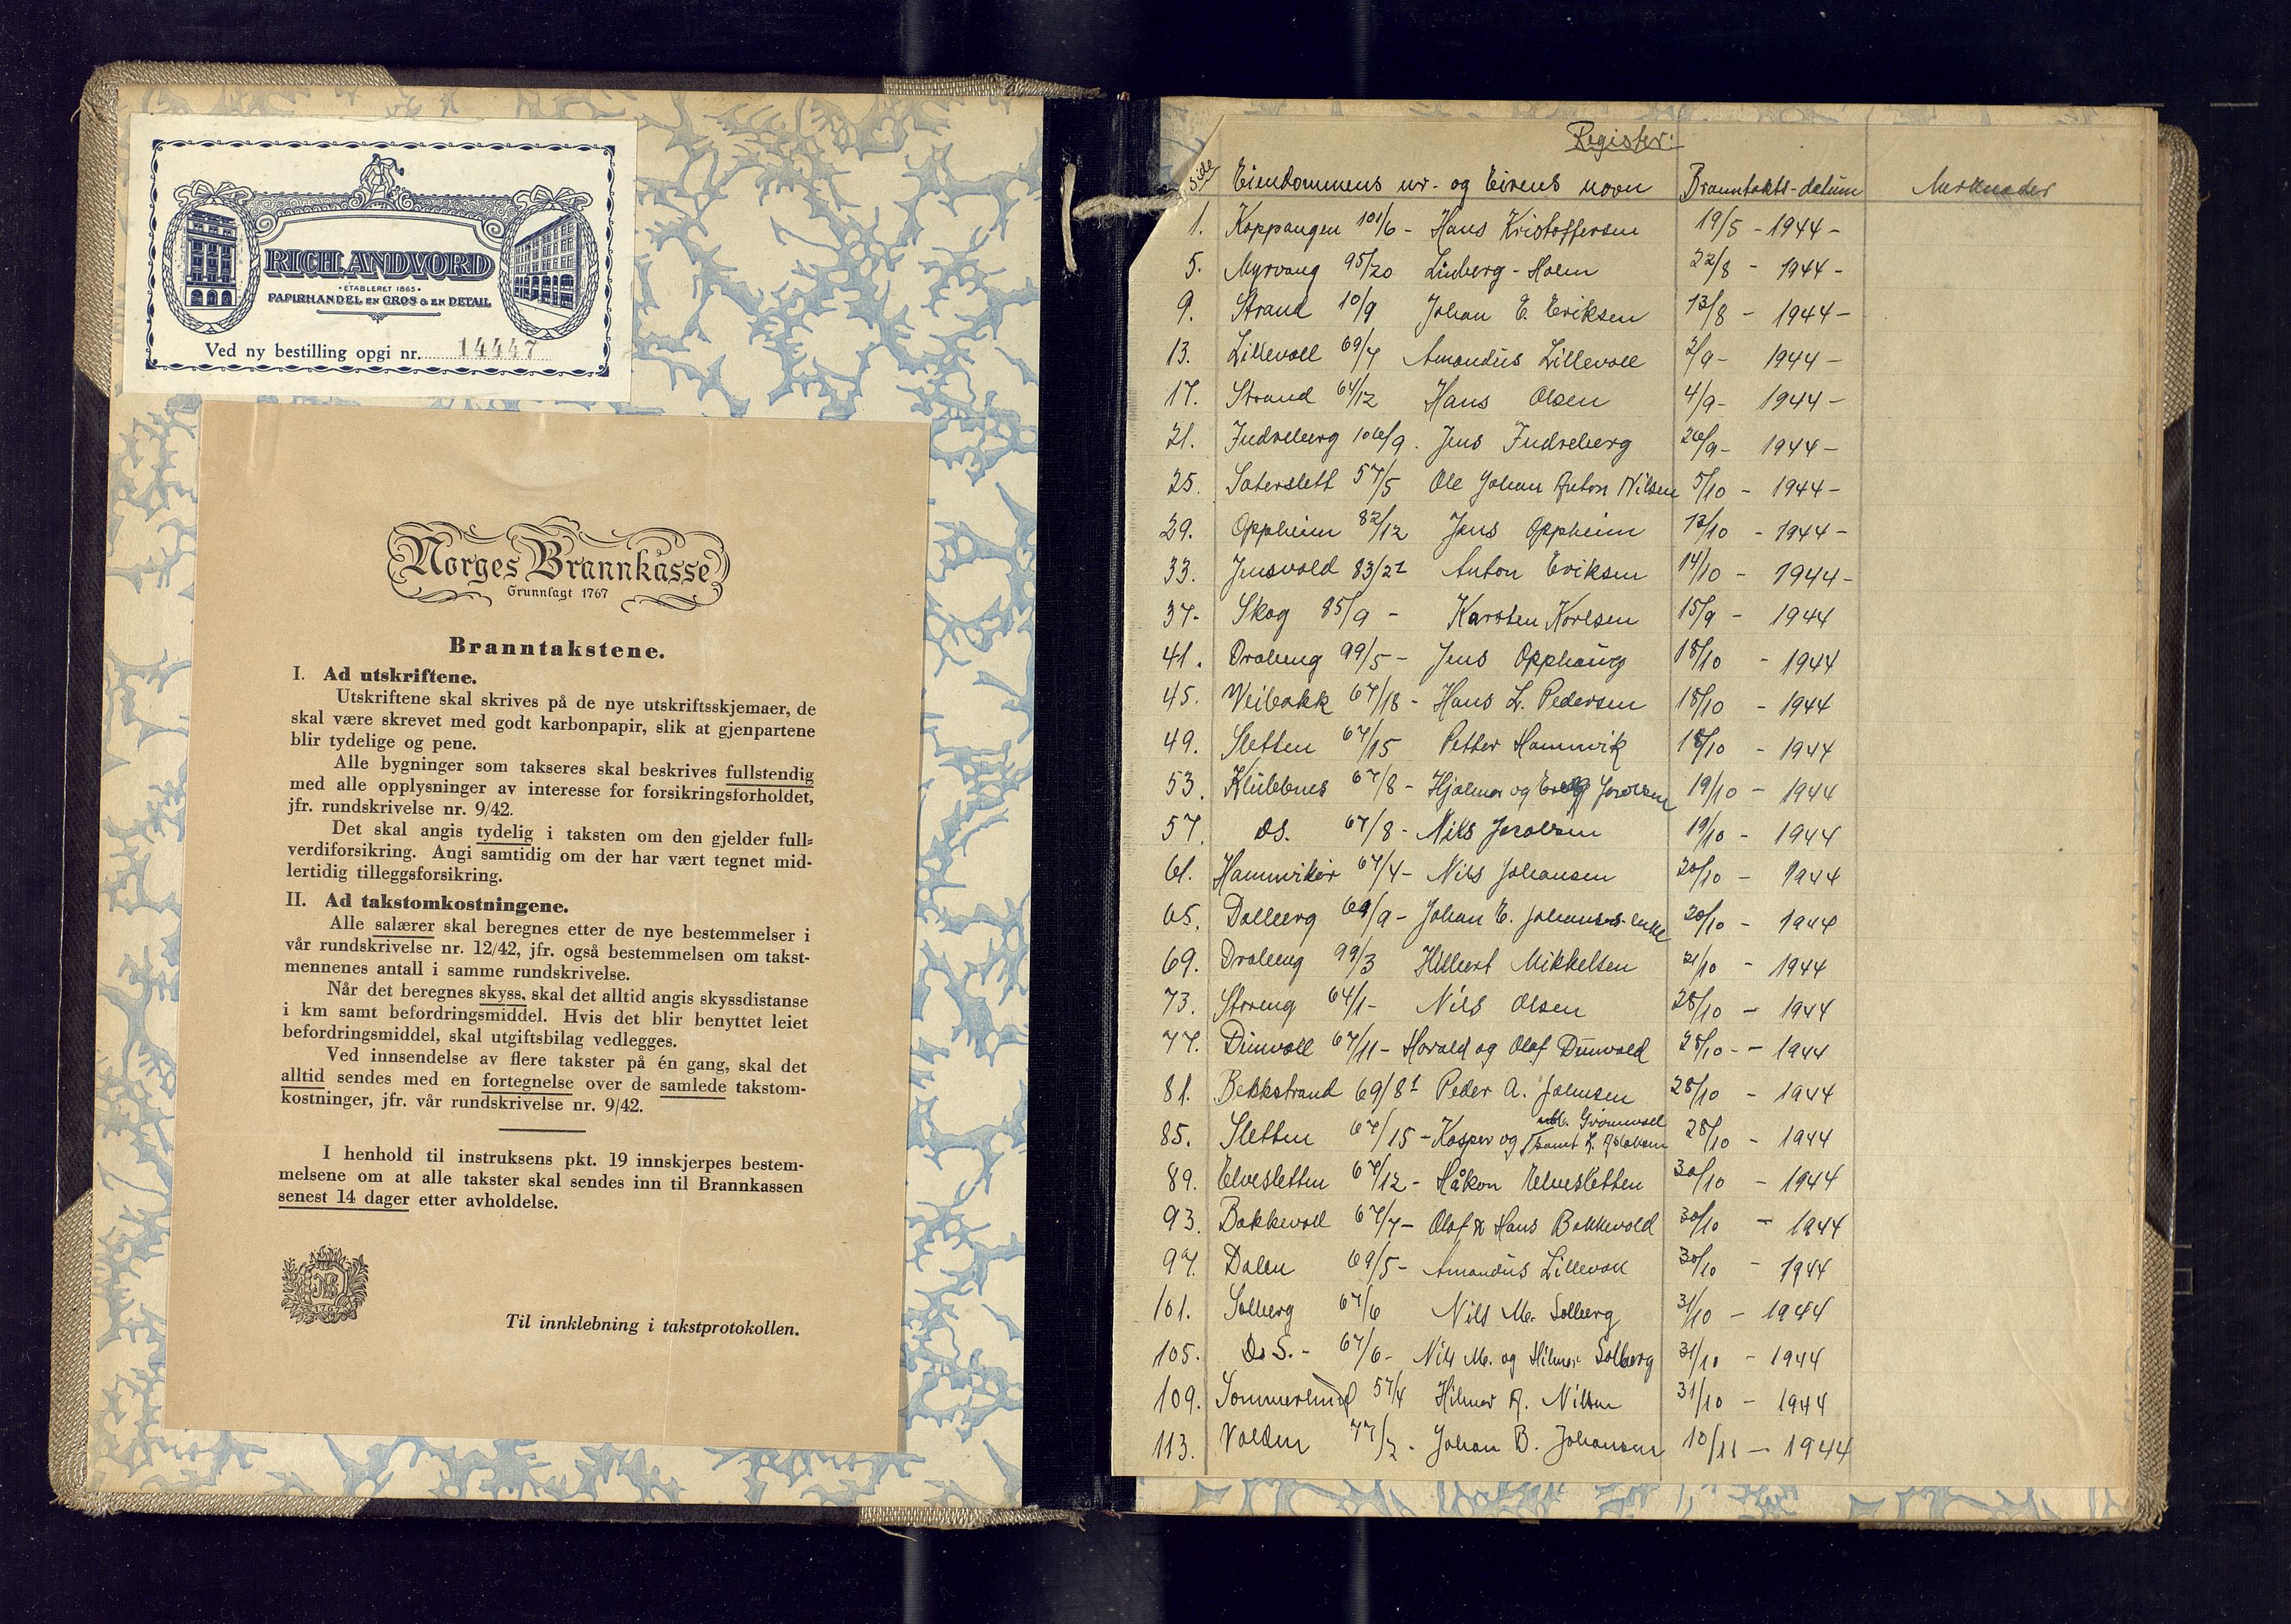 RICH. ANDVORD
• ETABLERET 1865 •
PAPIRHANDEL EN GROS & EN DETAIL
Ved ny bestilling opgi nr. 14447
Norges Brannkasse
Grunnlagt 1767
Branntakstene.
I. Ad utskriftene.
Utskriftene skal skrives på de nye utskriftsskjemaer, de
skal være skrevet med godt karbonpapir, slik at gjenpartene
blir tydelige og pene.
Alle bygninger som takseres skal beskrives fullstendig
med alle opplysninger av interesse for forsikringsforholdet,
jfr. rundskrivelse nr. 9/42.
Det skal angis tydelig i taksten om den gjelder full-
verdiforsikring. Angi samtidig om der har vært tegnet mid-
lertidig tilleggsforsikring.
II. Ad takstomkostningene.
Alle salærer skal beregnes etter de nye bestemmelser i
vår rundskrivelse nr. 12/42, jfr. også bestemmelsen om takst-
mennenes antall i samme rundskrivelse.
Når det beregnes skyss, skal det alltid angis skyssdistanse
i km samt befordringsmiddel. Hvis det blir benyttet leiet
befordringsmiddel, skal utgiftsbilag vedlegges.
Ved innsendelse av flere takster på én gang, skal det
alltid sendes med en fortegnelse over de samlede takstom-
kostninger, jfr. vår rundskrivelse nr. 9/42.
I henhold til instruksens pkt. 19 innskjerpes bestem-
melsene om at alle takster skal sendes inn til Brannkassen
senest 14 dager etter avholdelse.
1767
Til innklebning i takstprotokollen.
Register:
Side Eiendommens nr. og Eirens navn Branntakts-datum Merknader
1. Koppangen 101/6 - Hans Kristoffersen 19/5 - 1944 -
5. Myrvang 95/20 Linberg-Holm 22/8 - 1944 -
9. Strand 10/9 Johan E. Eriksen 13/8 - 1944 -
13. Lillevoll 69/7 Amandus Lillevoll 2/9 - 1944 -
17. Strand 64/12 Hans Olsen 4/9 - 1944 -
21. Indreberg 106/9. Jens Indreberg 26/9 - 1944 -
25. Saterslett 57/5 Ole Johan Anton Nilsen 5/10 - 1944 -
29. Oppheim 82/12 Jens Oppheim 12/10 - 1944 -
33. Jensvold 83/21 Anton Eriksen 14/10 - 1944 -
37. Skog 85/9 - Karsten Karlsen 15/9 - 1944
41. Draleng 99/5 - Jens Opphaug 18/10 - 1944
45. Veibakk 67/18 - Hans L. Pedersen 18/10 - 1944
49. Sletten 67/15 Petter Hamnvik 18/10 - 1944
53. Klubbnes 67/8 - Hjalmar og 19/10 - 1944
57. DS. 67/8 - Nils 19/10 - 1944
61. Hamnviker 67/4 - Nils Johansen 20/10 - 1944
65. Dalberg 69/9 - Johan E. Johansens enke 20/10 - 1944
69. Draleng 99/3 Hilbert Mikkelsen 21/10 - 1944
73. Storeng 64/1 - Nils Olsen 28/10 - 1944
77. Dunvoll 67/11 - Harald og Olaf Dunvold 28/10 - - 1944
81. Bekkstrand 69/81 Peder A. Johnsen 28/10 - 1944
85. Sletten 67/15 - Kasper og samt L. 28/10 - 1944
89. Elvesletten 67/12 - Håkon Elvesletten 30/10 - 1944
93. Bakkevoll 67/7 - Olaf & Hans Bakkevold 30/10 - 1944
97. Dalen 69/5 - Amandus Lillevoll 30/10 - 1944
101. Solberg 67/6 Nils M. Solberg 31/10 - 1944
105. D.S. - 67/6 - Nils M. og Hilmar Solberg 31/10 - 1944
109. Sommerlund 57/4 Hilmar A. Nilsen 31/10 - 1944
113. Volden 77/2 - Johan B. Johansen 10/11 - 1944